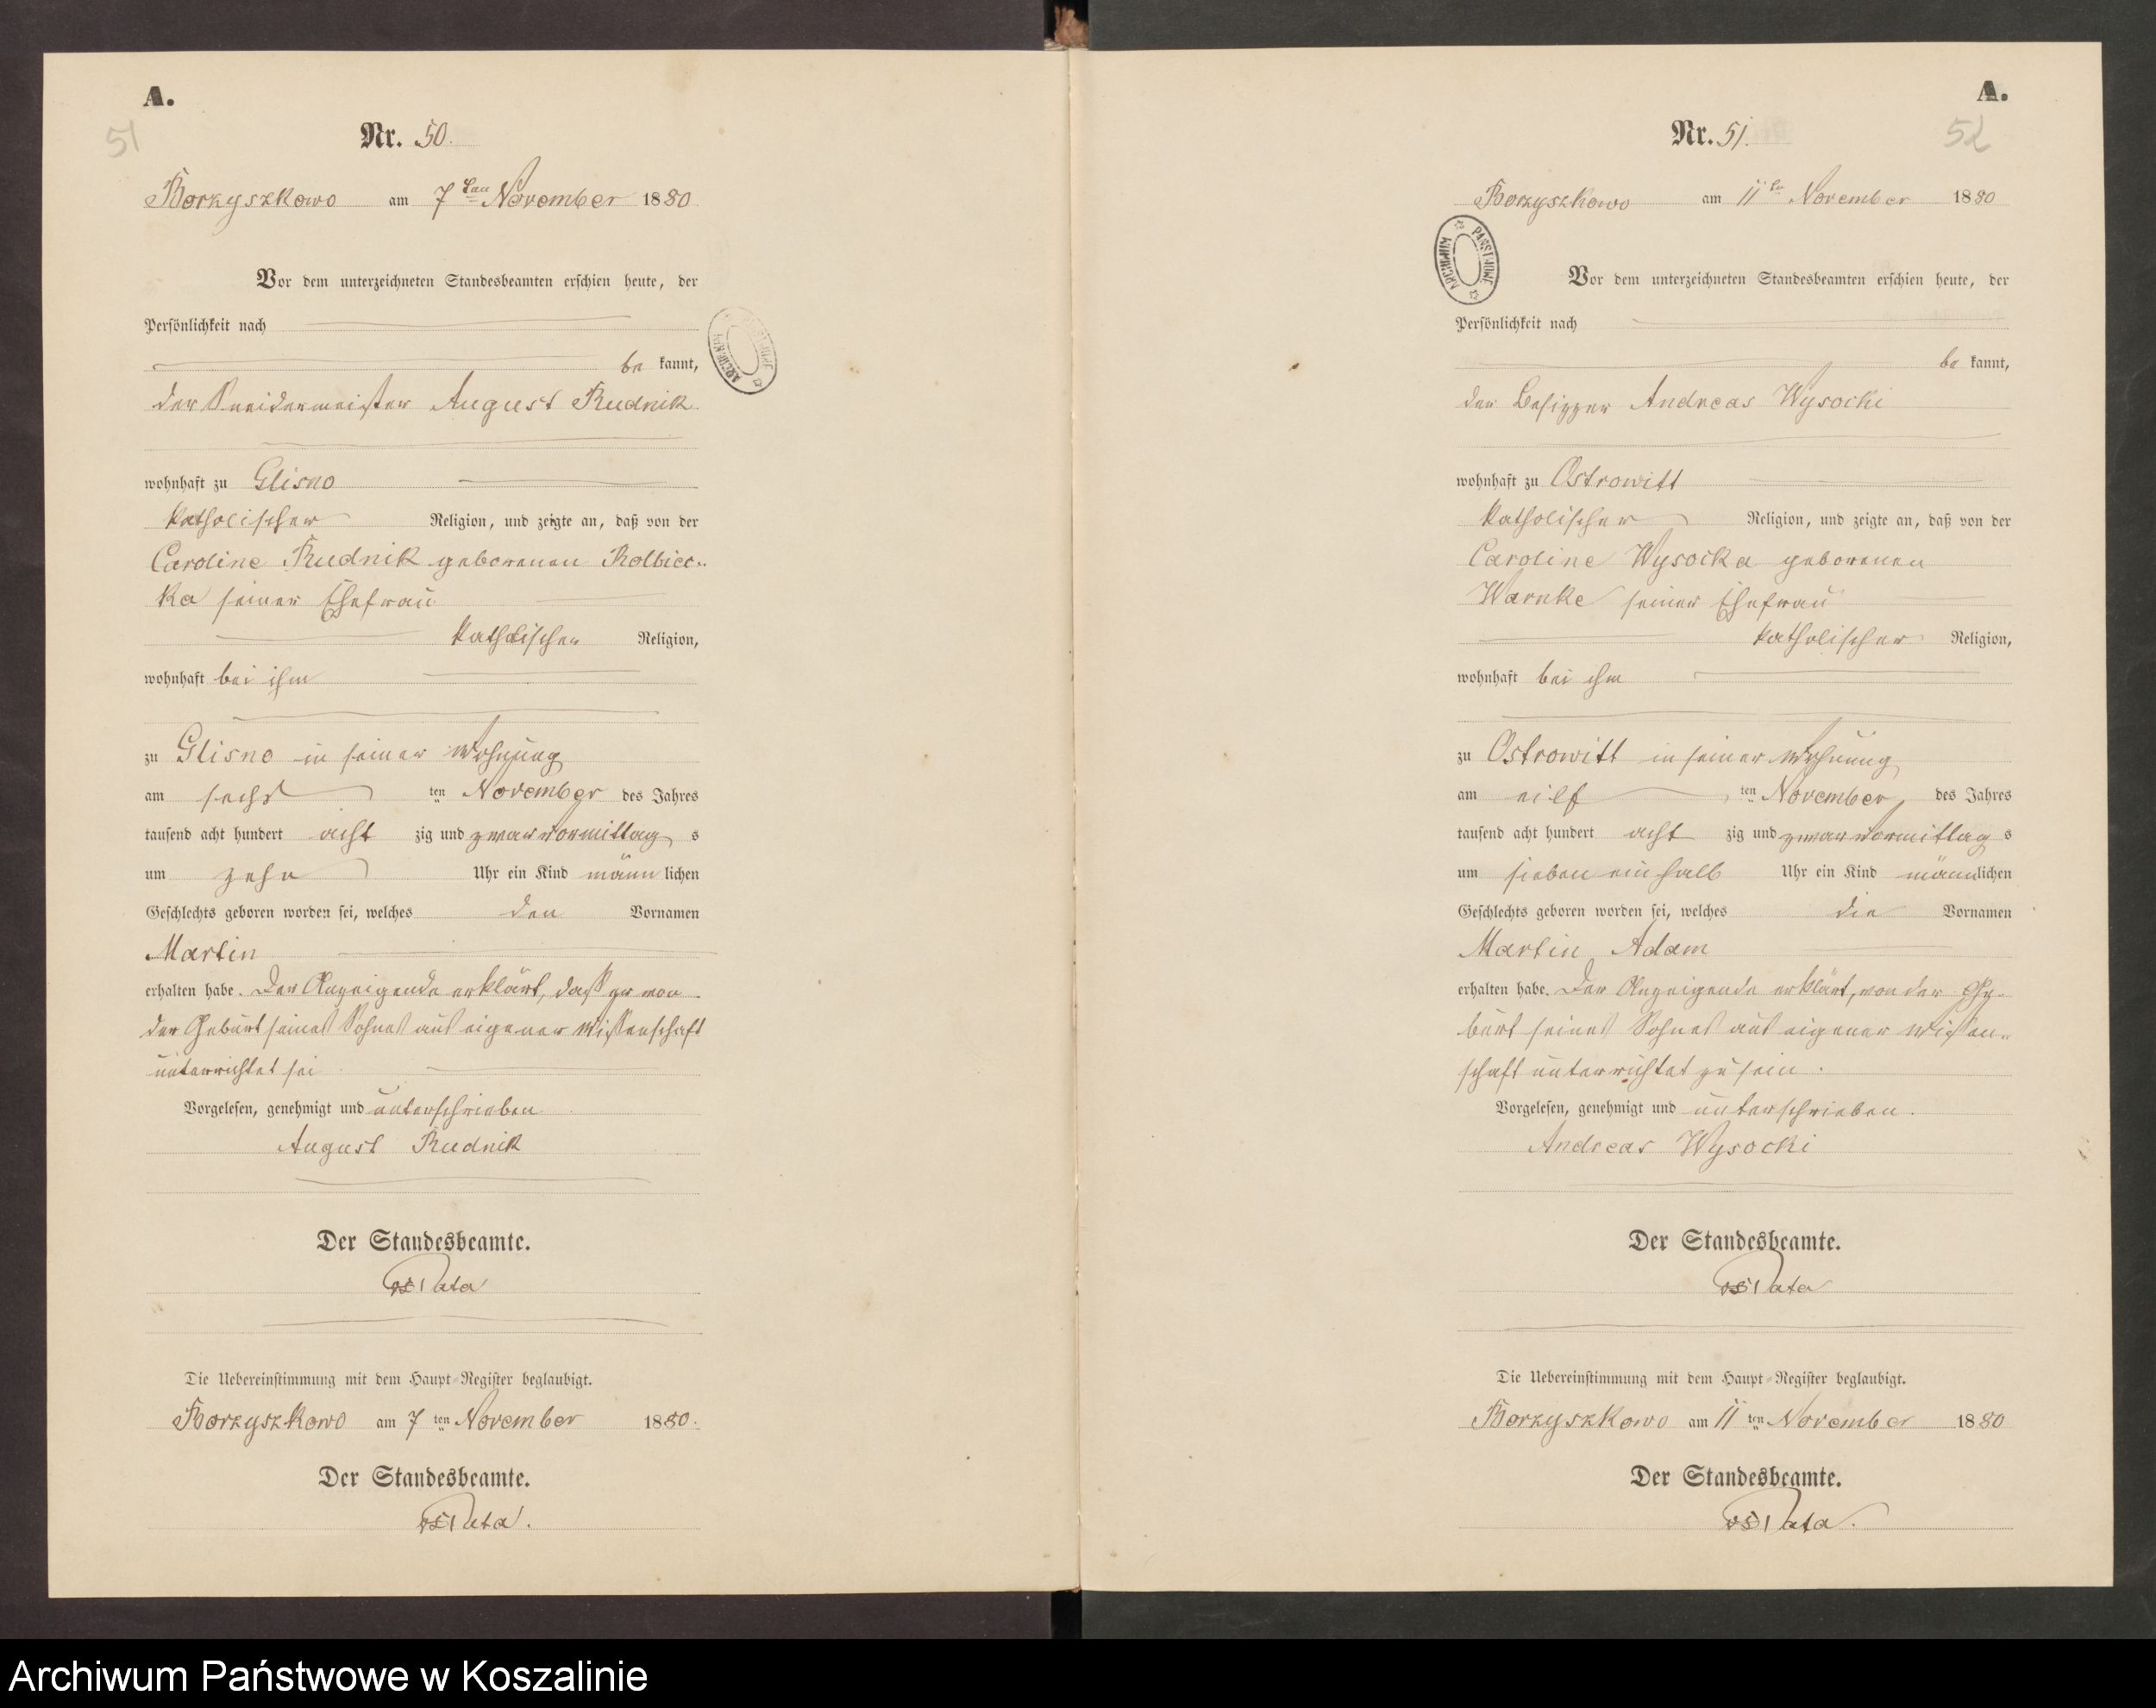 A.
51
Nr. 50.
Borzyszkowo am 7ten November 1880
Vor dem unterzeichneten Standesbeamten erschien heute, der
Persönlichkeit nach
be kannt,
der Sneidermeister August Rudnik
wohnhaft zu Glisno
katholischer Religion, und zeigte an, daß von der
Caroline Rudnik geborenen Kolbiec-
ka seiner Ehefrau
katholischer Religion,
wohnhaft bei ihm
zu Glisno in seiner Wohnung
am sechs ten November des Jahres
tausend acht hundert acht zig und zwar vormittag s
um zehn Uhr ein Kind männ lichen
Geschlechts geboren worden sei, welches den Vornamen
Martin
erhalten habe. Der Anzeigende erklärt, daß er von
der Geburt seines Sohnes aus eigener Wissenschaft
unterrichtet sei
Vorgelesen, genehmigt und unterschrieben
August Rudnik
Der Standesbeamte.
Die Uebereinstimmung mit dem Haupt-Register beglaubigt.
Borzyszkowo am 7 ten November 1880.
Der Standesbeamte.
A.
52
Nr. 51.
Borzyszkowo am 11ten November 1880
ARCHIWUM PAŃSTWOWE
Vor dem unterzeichneten Standesbeamten erschien heute, der
Persönlichkeit nach
be kannt,
der Besitzer Andreas Wysocki
wohnhaft zu Ostrowitt
katholischer Religion, und zeigte an, daß von der
Caroline Wysocka geborenen
Warnke seiner Ehefrau
katholischer Religion,
wohnhaft bei ihm
zu Ostrowitt in seiner Wohnung
am eilf ten November des Jahres
tausend acht hundert acht zig und zwar vormittag s
um sieben ein halb Uhr ein Kind männlichen
Geschlechts geboren worden sei, welches die Vornamen
Martin Adam
erhalten habe. Der Anzeigende erklärt, von der Ge-
burt seines Sohnes aus eigener Wissen-
schaft unterrichtet zu sein.
Vorgelesen, genehmigt und unterschrieben.
Andreas Wysocki
Der Standesbeamte.
Die Uebereinstimmung mit dem Haupt-Register beglaubigt.
Borzyszkowo am 11 ten November 1880
Der Standesbeamte.
Archiwum Państwowe w Koszalinie